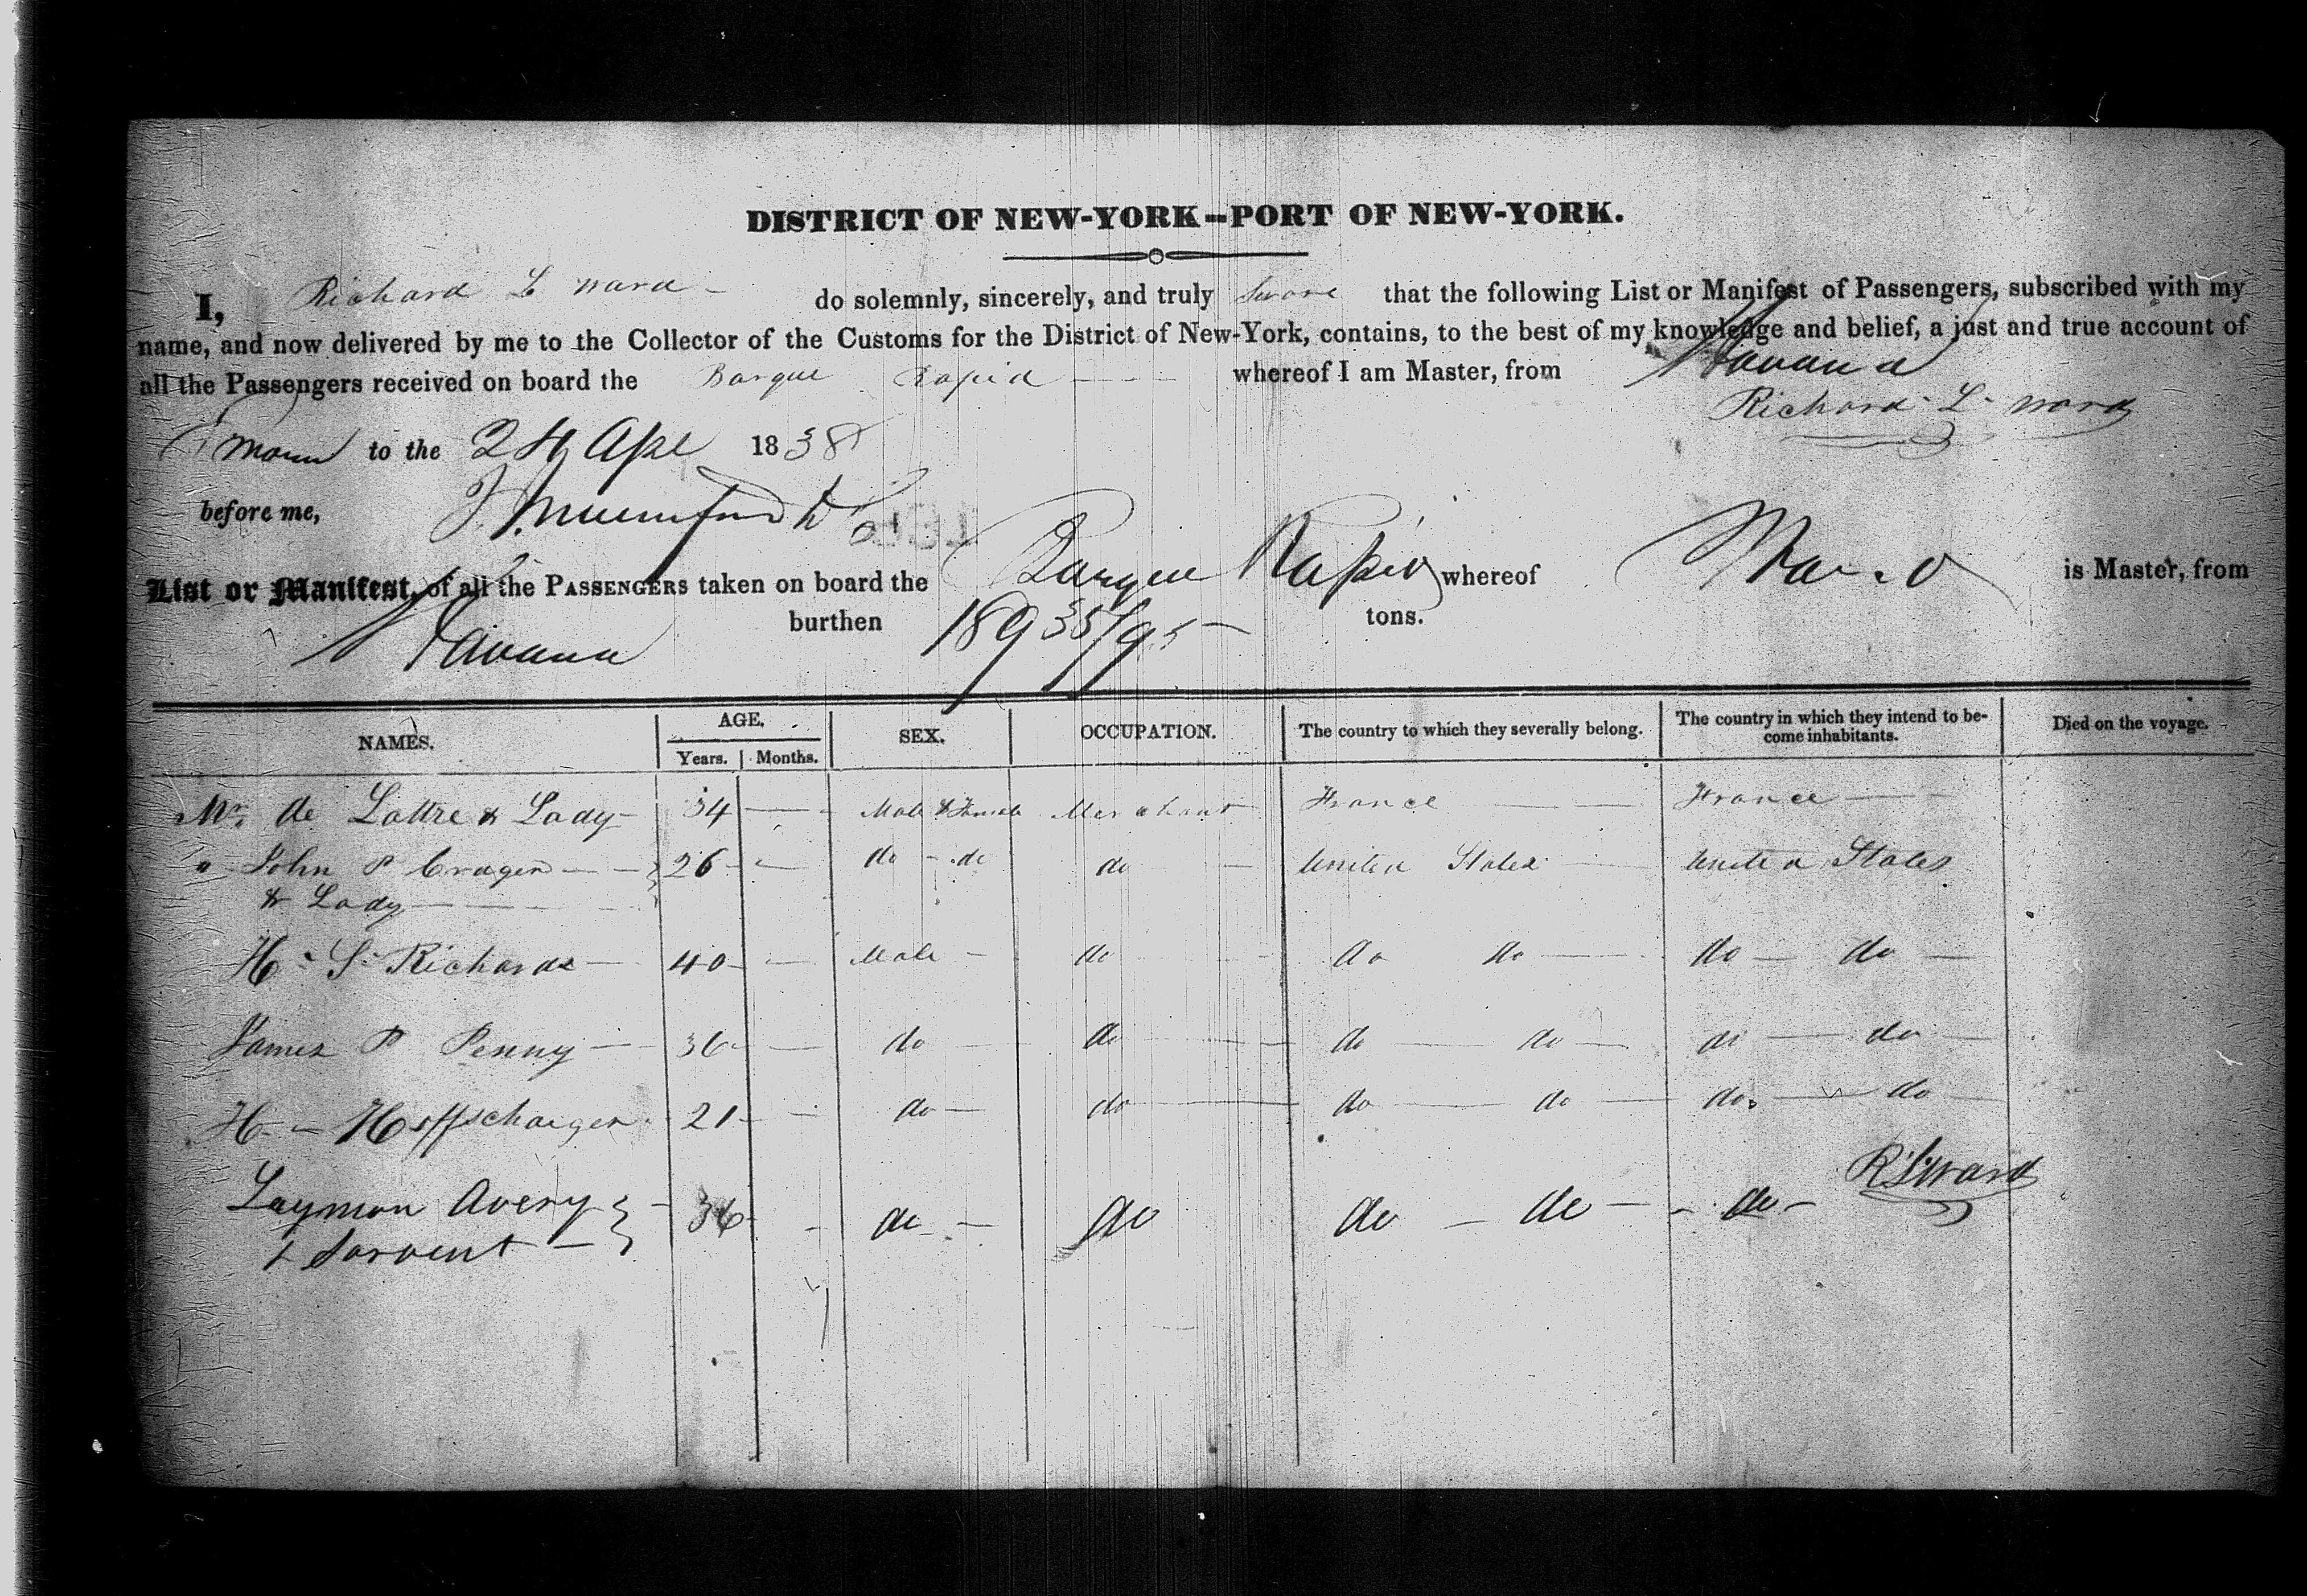 DISTRICT OF NEW-YORK—PORT OF NEW-YORK.
I, Richard L Ward do solemnly, sincerely, and truly Swore that the following List or Manifest of Passengers, subscribed with my
name, and now delivered by me to the Collector of the Customs for the District of New-York, contains, to the best of my knowledge and belief, a just and true account of
all the Passengers received on board the Barque Rapid whereof I am Master, from Havana
Richard L Ward
to the 24 Apl 1838
before me,
List or Manifest, of all the PASSENGERS taken on board the Barque Rapid whereof Ward is Master, from
Havana burthen 189 35/95 tons.
NAMES. AGE. SEX. OCCUPATION. The country to which they severally belong. The country in which they intend to be- Died on the voyage.
Years. Months. come inhabitants.
Mr. de Lattre & Lady 34 Male & Female Merchant France France
" John P Cruger 26 do do do United States United States
& Lady
H. S. Richards 40 Male do do do do do
James P Penny 36 do do do do do do
H 21 do do do do do do
R L Ward
Laymon Avery 36 do do do do do
& Servent